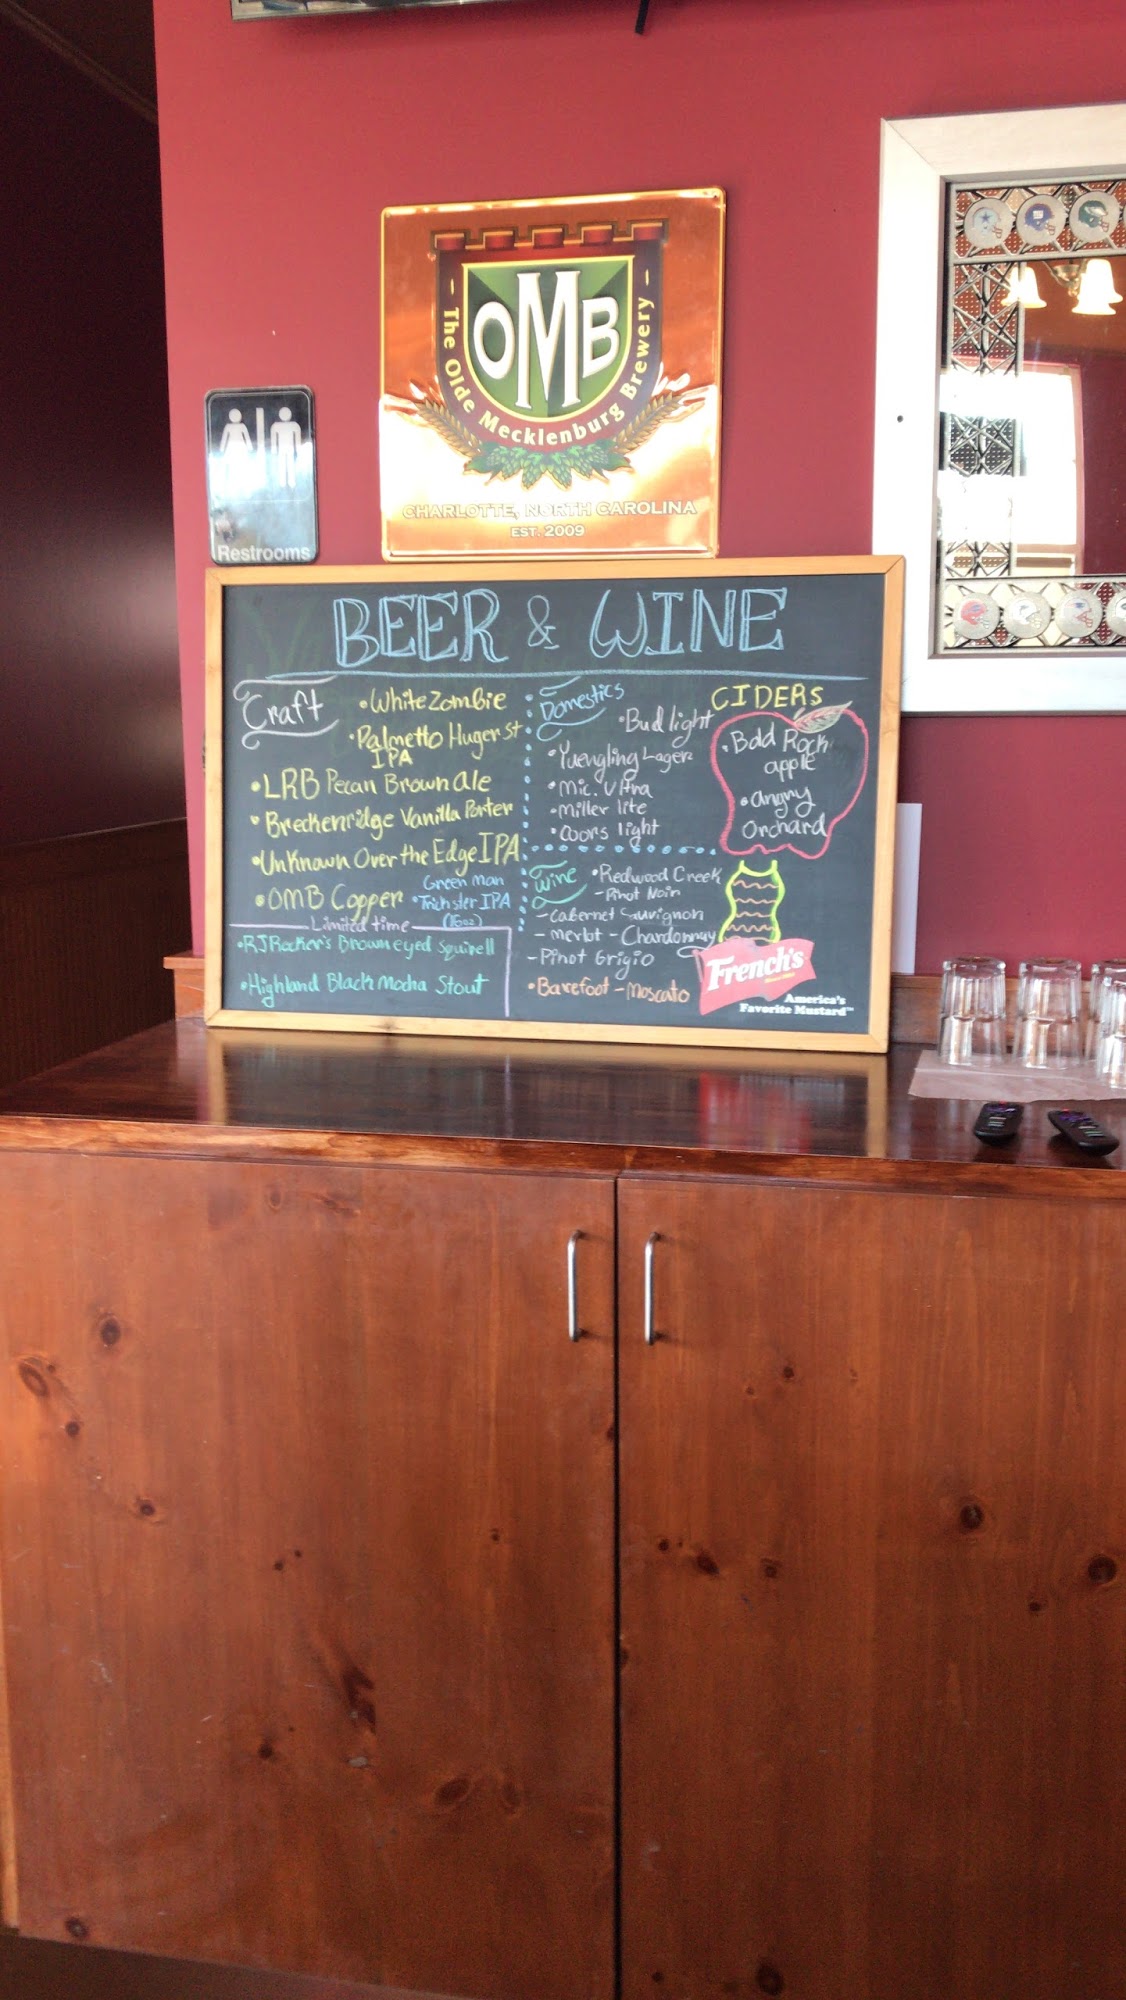 OMB
The Olde Mecklenburg Brewery
CHARLOTTE, NORTH CAROLINA
EST. 2009
Restrooms
BEER & WINE
Craft
• White Zombie
• Palmetto Huger St
IPA
• LRB Pecan Brown Ale
• Breckenridge Vanilla Porter
• Unknown Over the Edge IPA
• OMB Copper
Green man
• Trickster IPA
(16oz)
Limited time
• RJ Rocker's Brown eyed Squirell
• Highland Black Mocha Stout
Domestics
• Bud light
• Yuengling Lager
• Mic. Ultra
• Miller lite
• Coors light
Wine
• Redwood Creek
- Pinot Noir
- Cabernet Sauvignon
- Merlot - Chardonnay
- Pinot Grigio
• Barefoot - Moscato
CIDERS
• Bold Rock
apple
• Angry
Orchard
French's
America's
Favorite Mustard™